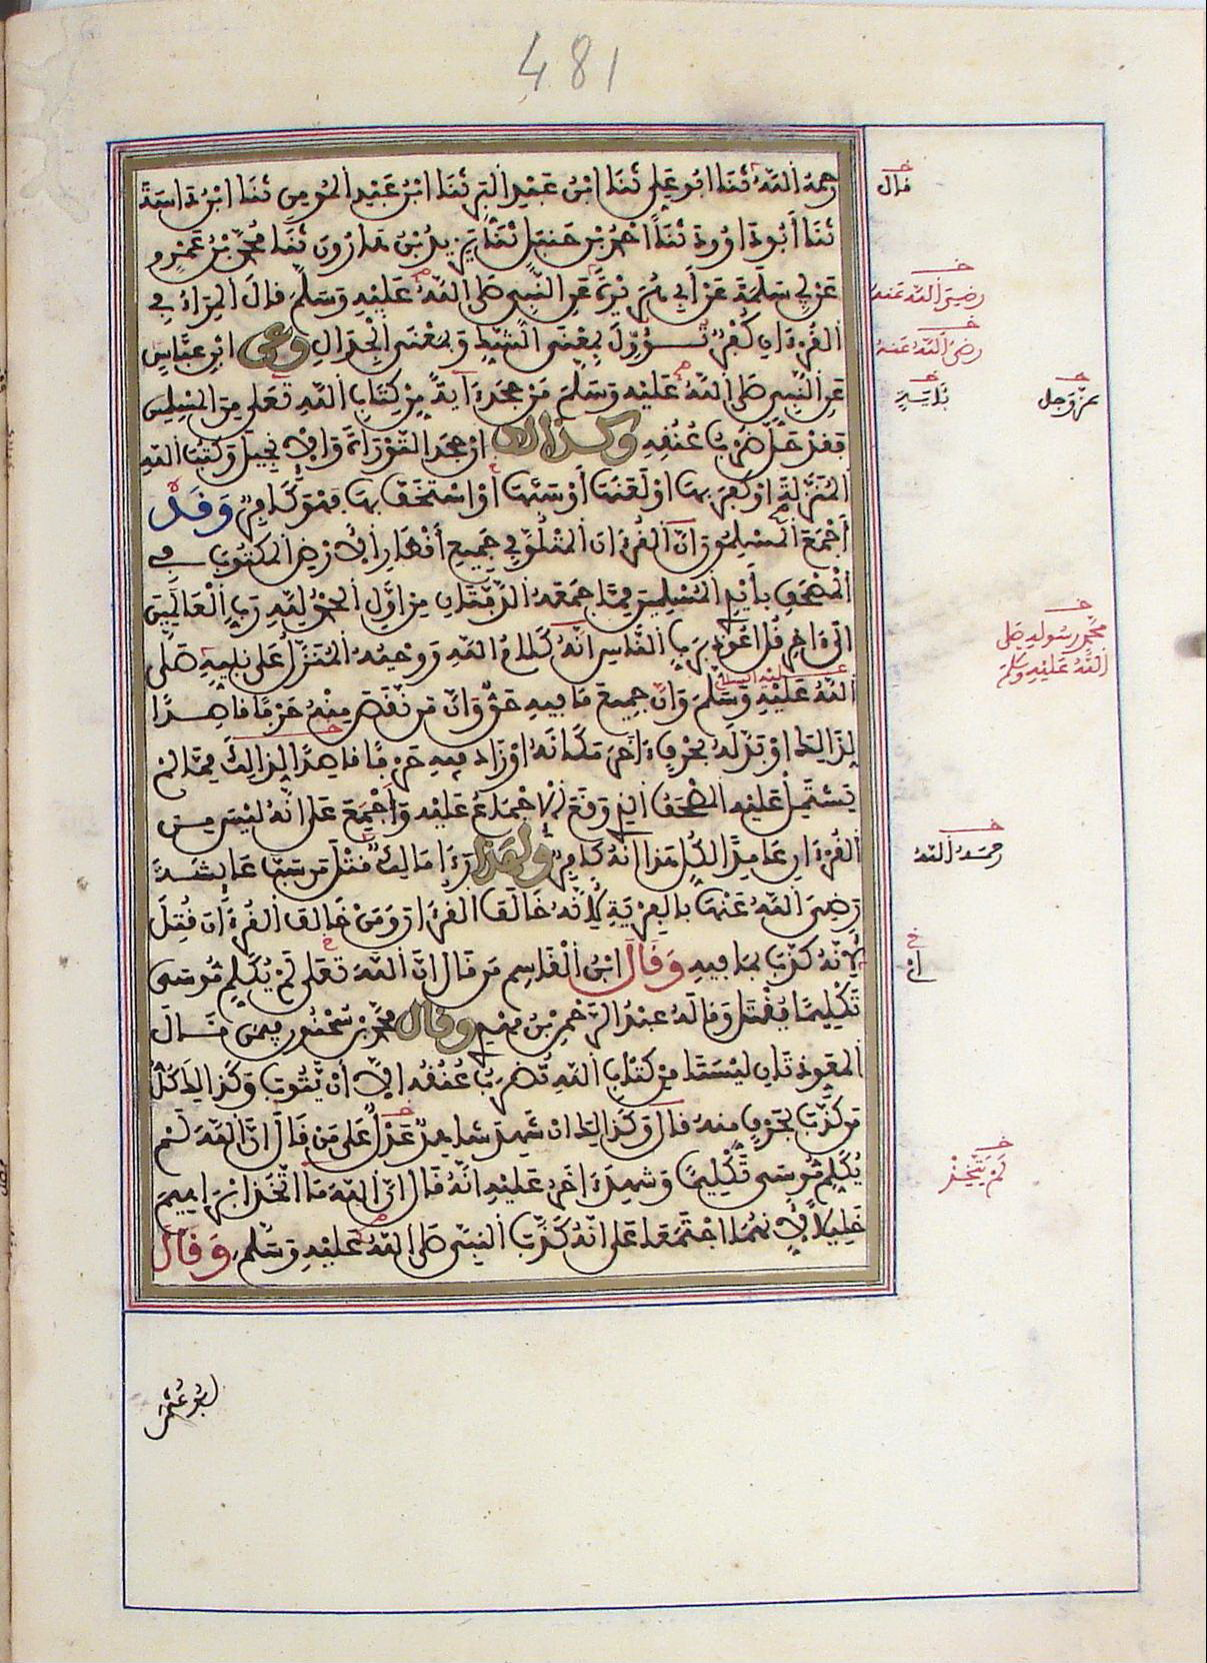 481
رحمه الله ثنا ابو علي ثنا ابن عبد البر ثنا ابن عبد المومن ثنا ابن داسة
ثنا أبو داوود ثنا احمد بن حنبل ثنا يزيد بن هارون ثنا محمد بن عمرو
عن ابي سلمة عن أبي هريرة عن النبي صلى الله عليه وسلم قال المراء في
القرءان كفر تؤول بمعنى الشك وبمعنى الجدال وعن ابن عباس
عن النبي صلى الله عليه وسلم من جحد ءاية من كتاب الله تعلى من المسلمين
فقد حل ضرب عنقه وكذالك ان جحد التوراة والانجيل وكتب الله
المنزلة او كفر بها او لعنها أو سبها أو استخف بها فهو كافر وقد
أجمع المسلمون ان القرءان المتلو في جميع أقطار الارض المكتوب في
المصحف بأيدي المسلمين مما جمعه الدفتان من اول الحمد لله رب العالمين
الى ءاخر قل اعوذ برب الناس انه كلام الله ووحيه المنزل على نبيه صلى
عليه السلام
الله عليه وسلم وان جميع ما فيه حق وان من نقص منه حرفا قاصدا
لذالك او بدله بحرف ءاخر مكانه او زاد فيه حرفا قاصدا لذالك مما لم
يشتمل عليه المصحف الذي وقع الاجماع عليه وأجمع على انه ليس من
القرءان عامدا لكل هذا انه كافر ولهذا رءا مالك قتل من سب عايشة
رضي الله عنها بالفرية لانه خالف القرءان ومن خالف القرءان قتل
لانه كذب بما فيه وقال ابن القاسم من قال ان الله تعلى لم يكلم موسى
تكليما يقتل وقاله عبد الرحمن بن مهدي وقال محمد بن سحنون فيمن قال
المعوذتان ليستا من كتاب الله تضرب عنقه الا أن يتوب وكذالك كل
من كذب بحرف منه قال وكذالك ان شهد شاهد عدل على من قال ان الله لم
يكلم موسى تكليما وشهد ءاخر عليه انه قال ان الله ما اتخذ ابراهيم
خليلا لانهما اجتمعا على انه كذب النبي صلى الله عليه وسلم وقال
قال
رضي الله عنه
رضي الله عنه
عز وجل
محمد رسوله صلى
الله عليه وسلم
رحمه الله
ان
لم يتخذ
ابو عثمن